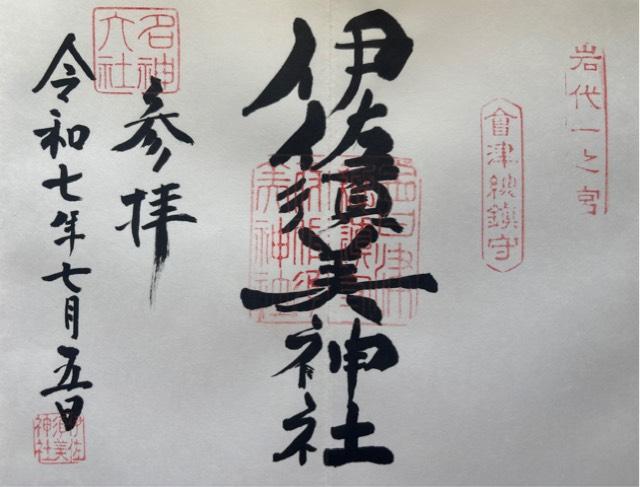 岩代一之宮
會津總鎮守
伊佐須美神社
参拝
名神大社
令和七年七月五日
伊佐須美神社